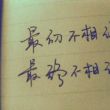 最初不相
最好不相